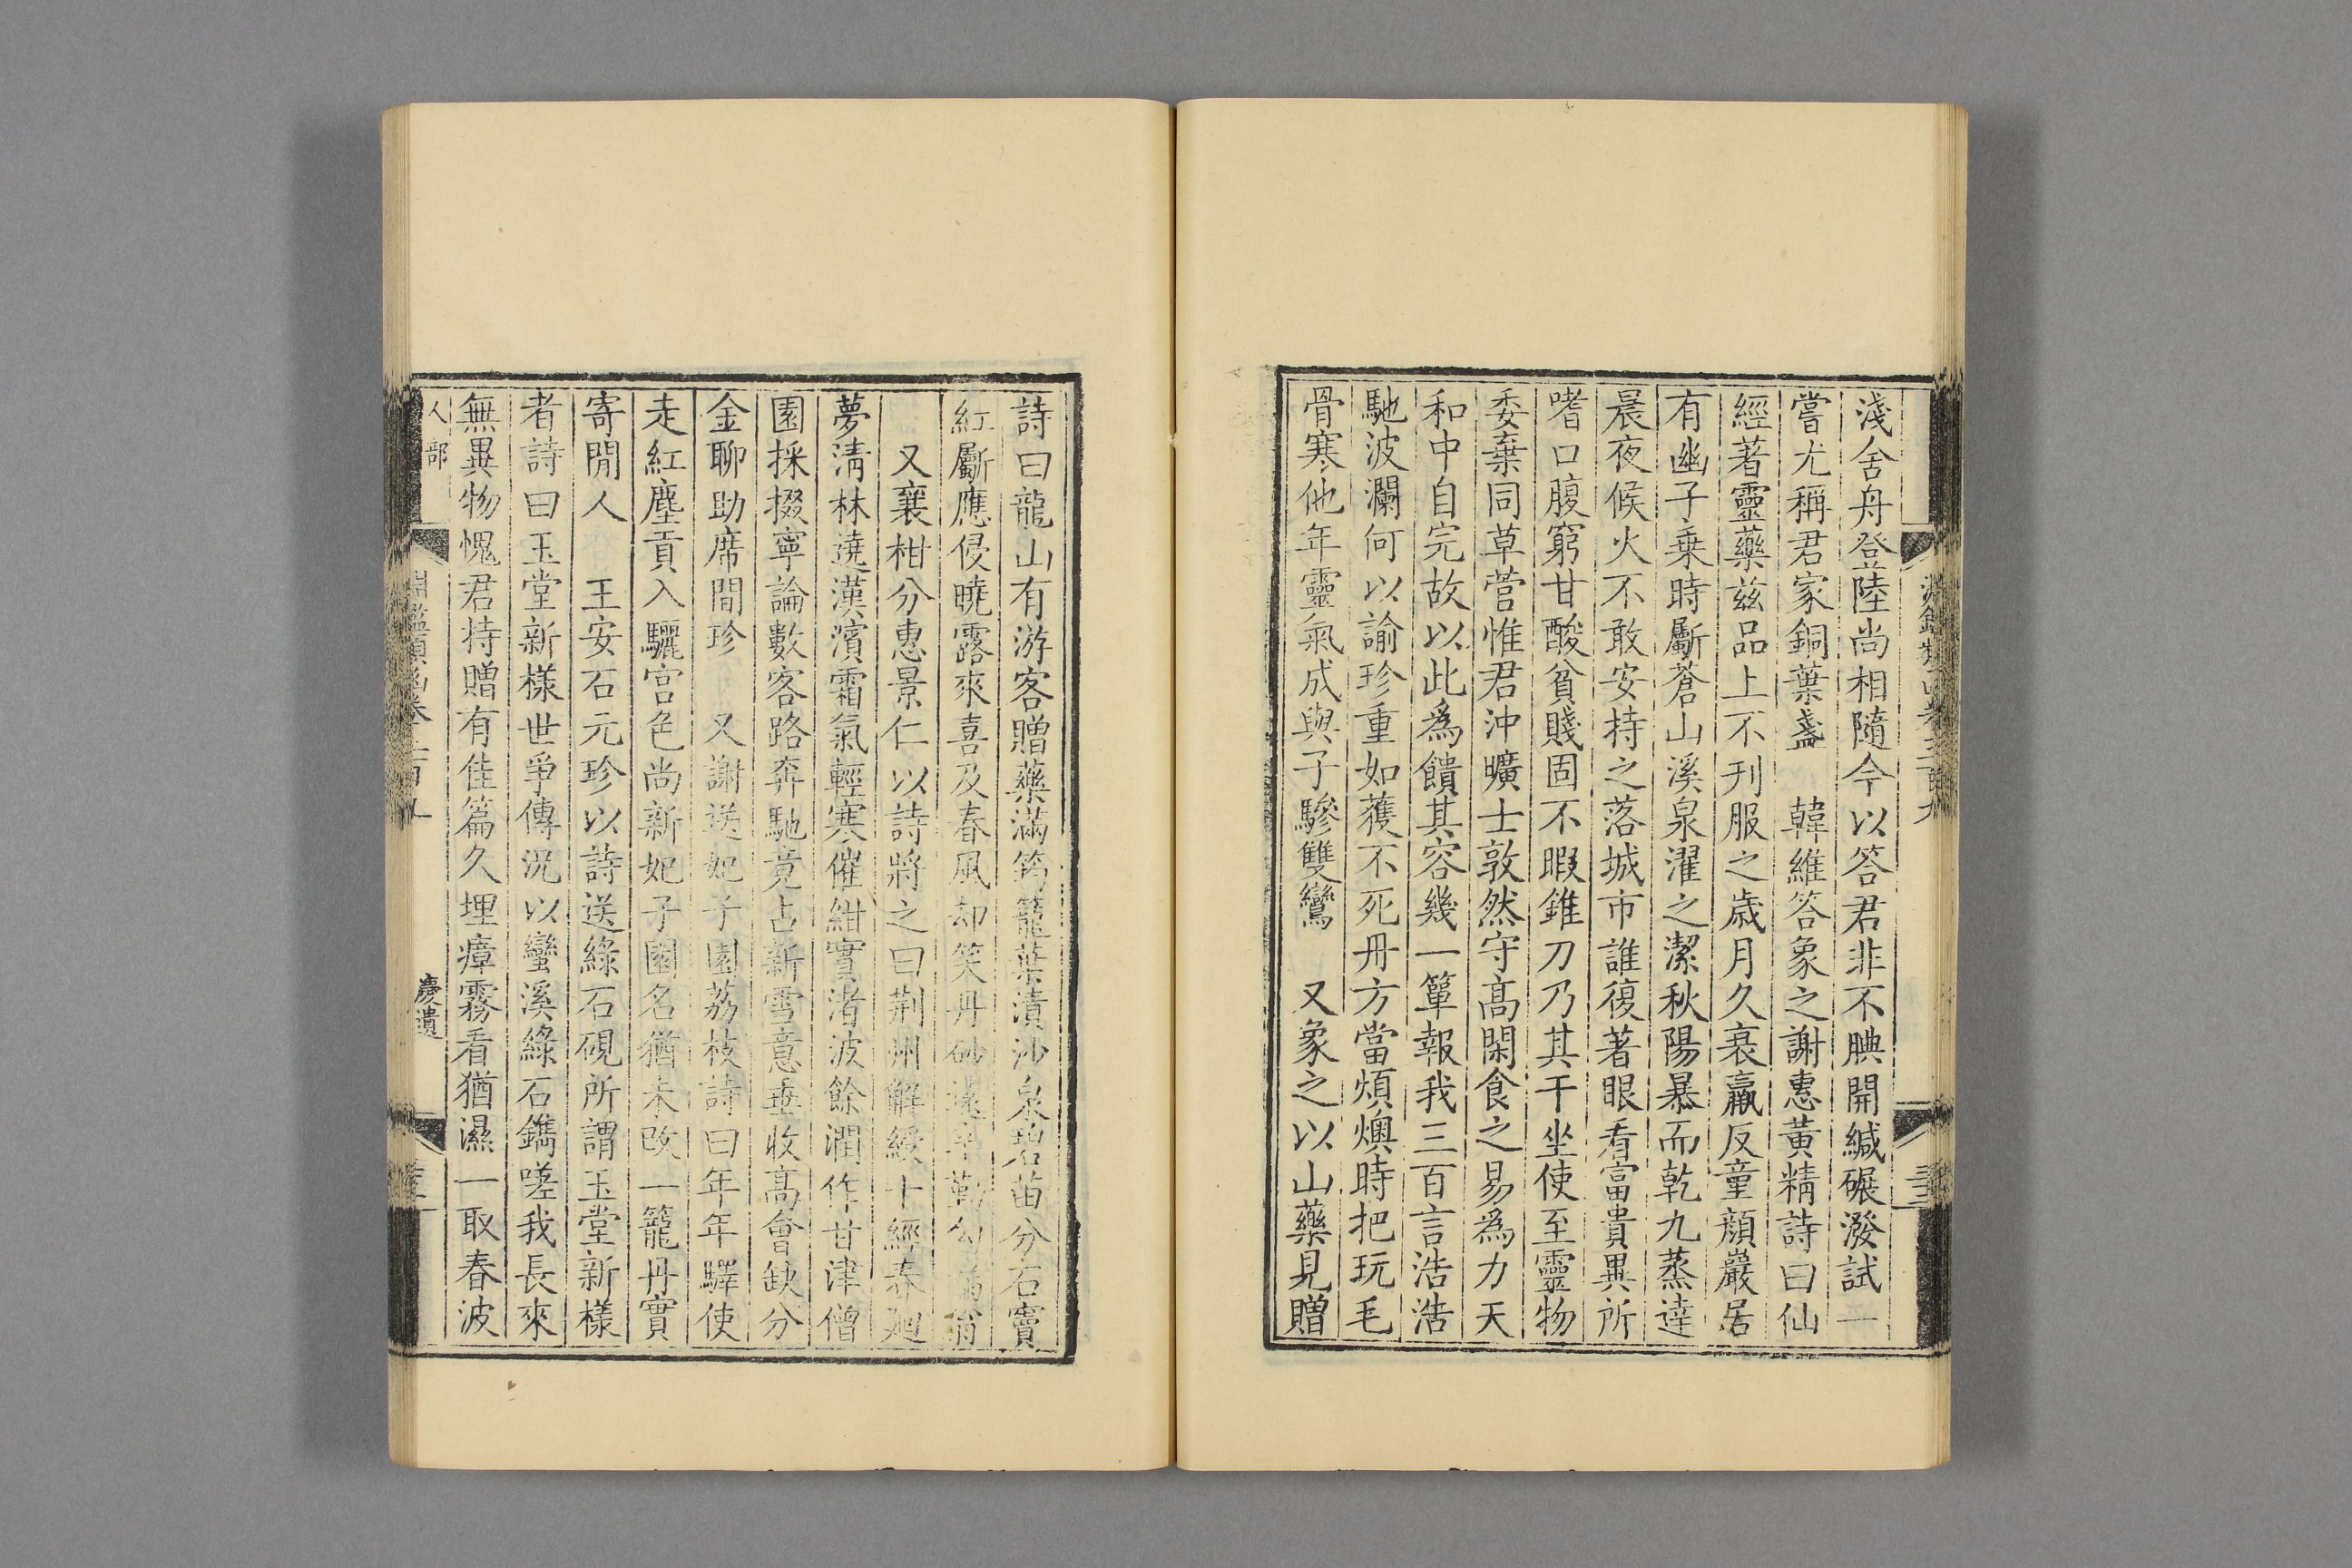 淺舍舟登陸尚相隨今以答君非不腆開緘碾潑試一
嘗尤稱君家銅葉盞　韓維答象之謝惠黃精詩曰仙
經著靈藥茲品上不刊服之歲月久衰羸反童顏巖居
有幽子乗時斸蒼山溪泉濯之潔秋陽暴而乾九蒸達
晨夜候火不敢安持之落城市誰復著眼看富貴異所
嗜口腹窮甘酸貧賤固不暇錐刀乃其干坐使至靈物
委棄同草菅惟君沖曠士敦然守高閑食之易爲力天
和中自完故以此爲饋其容幾一簞報我三百言浩浩
馳波瀾何以諭珍重如獲不死丹方當煩燠時把玩毛
骨寒他年靈氣成與子驂雙鸞　又象之以山藥見贈
詩曰龍山有游客贈藥滿筠籠葉漬沙泉碧苗分石竇
紅斸應侵曉露來喜及春風却笑丹砂遠辛勤勾漏翁
又襄柑分惠景仁以詩將之曰荆州解綬十經春廻
夢淸林遶漢濱霜氣輕寒催紺實渚波餘潤作甘津僧
園採掇寧論數客路奔馳竟占新雪意垂收高會缺分
金聊助席間珍　又謝送妃子園荔枝詩曰年年驛使
走紅塵貢入驪宮色尚新妃子園名猶未改一籠丹實
寄閒人　王安石元珍以詩送綠石硯所謂玉堂新樣
者詩曰玉堂新樣世爭傳況以蠻溪綠石鐫嗟我長來
無異物愧君持贈有佳篇久埋瘴霧看猶濕一取春波
人部
慶遺